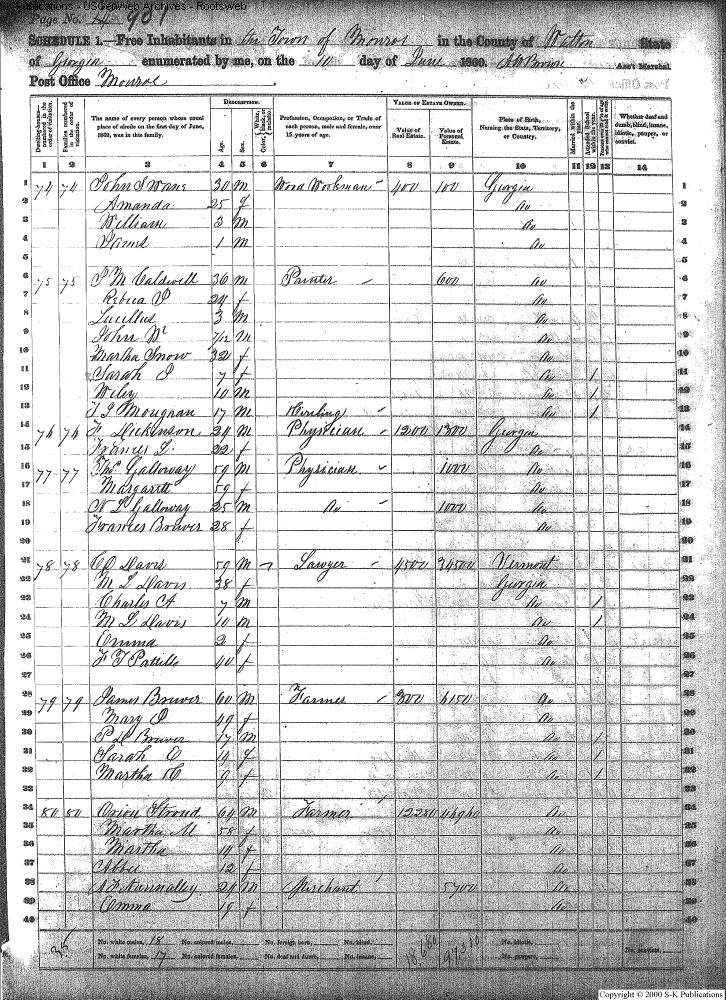 SK Publications - USGenWeb Archives - Rootsweb
Page No. 14 901
SCHEDULE 1.—Free Inhabitants in the Town of Monroe in the County of Walton State
of Georgia enumerated by me, on the 10 day of June 1860. Ass't Marshal.
Post Office Monroe
Dwelling-houses—numbered in the order of visitation.
Families numbered in the order of visitation.
The name of every person whose usual place of abode on the first day of June, 1860, was in this family.
DESCRIPTION.
Age.
Sex.
Color, White, black, or mulatto.
Profession, Occupation, or Trade of each person, male and female, over 15 years of age.
VALUE OF ESTATE OWNED.
Value of Real Estate.
Value of Personal Estate.
Place of Birth, Naming the State, Territory, or Country.
Married within the year.
Attended School within the year.
Whether deaf and dumb, blind, insane, idiotic, pauper, or convict.
1 2 3 4 5 6 7 8 9 10 11 12 13 14
1 74 74 John S 30 m Wood Workman 400 100 Georgia 1
2 Amanda 25 f Do 2
3 William 3 m Do 3
4 1 m Do 4
5 5
6 75 75 J M Caldwell 36 m Painter 600 Do 6
7 Rebeca J 24 f Do 7
8 Lucillus 3 m Do 8
9 John W 7/12 m Do 9
10 Martha Snow 32 f Do 10
11 Sarah J 7 f Do 1 11
12 Wiley 10 m Do 1 12
13 17 m Do 1 13
14 Dickenson 24 m Physician 1200 1300 Georgia 14
15 Frances L. 22 f Do 15
16 77 77 Thos. Galloway 59 m Physician 1000 Do 16
17 Margarett 59 f Do 17
18 Galloway 25 m Do 1000 Do 18
19 Frances Brewer 28 f Do 19
20 20
21 78 78 Davis 59 m Lawyer 4500 34500 Vermont 21
22 M L Davis 38 f Georgia 22
23 Charles A 7 m Do 1 23
24 M L Davis 10 m Do 1 24
25 Emma 2 f Do 25
26 F T Pattillo 40 f Do 26
27 27
28 79 79 James Brewer 60 m Farmer 300 6150 Do 28
29 Mary J 49 f Do 29
30 Brewer 17 m Do 1 30
31 Sarah C 19 f Do 1 31
32 Martha 9 f Do 1 32
33 33
34 80 80 Orion Stroud 64 m Farmer 12280 Do 34
35 Martha M 58 f Do 35
36 Martha 14 f Do 36
37 Abbie 12 f Do 37
38 Nunnalley 24 m Merchant 5700 Do 38
39 Emma 19 f Do 39
40 40
35 No. white males, 18 No. colored males, No. foreign born, No. blind, 18,680 97310 No. idiotic,
No. white females, 17 No. colored females, No. deaf and dumb, No. insane, No. paupers, No. convicts,
Copyright © 2000 S-K Publications